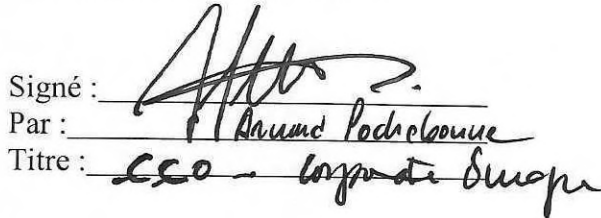 Signé :
Par : Armand Pochebonne
Titre : CCO - Corporate Europe